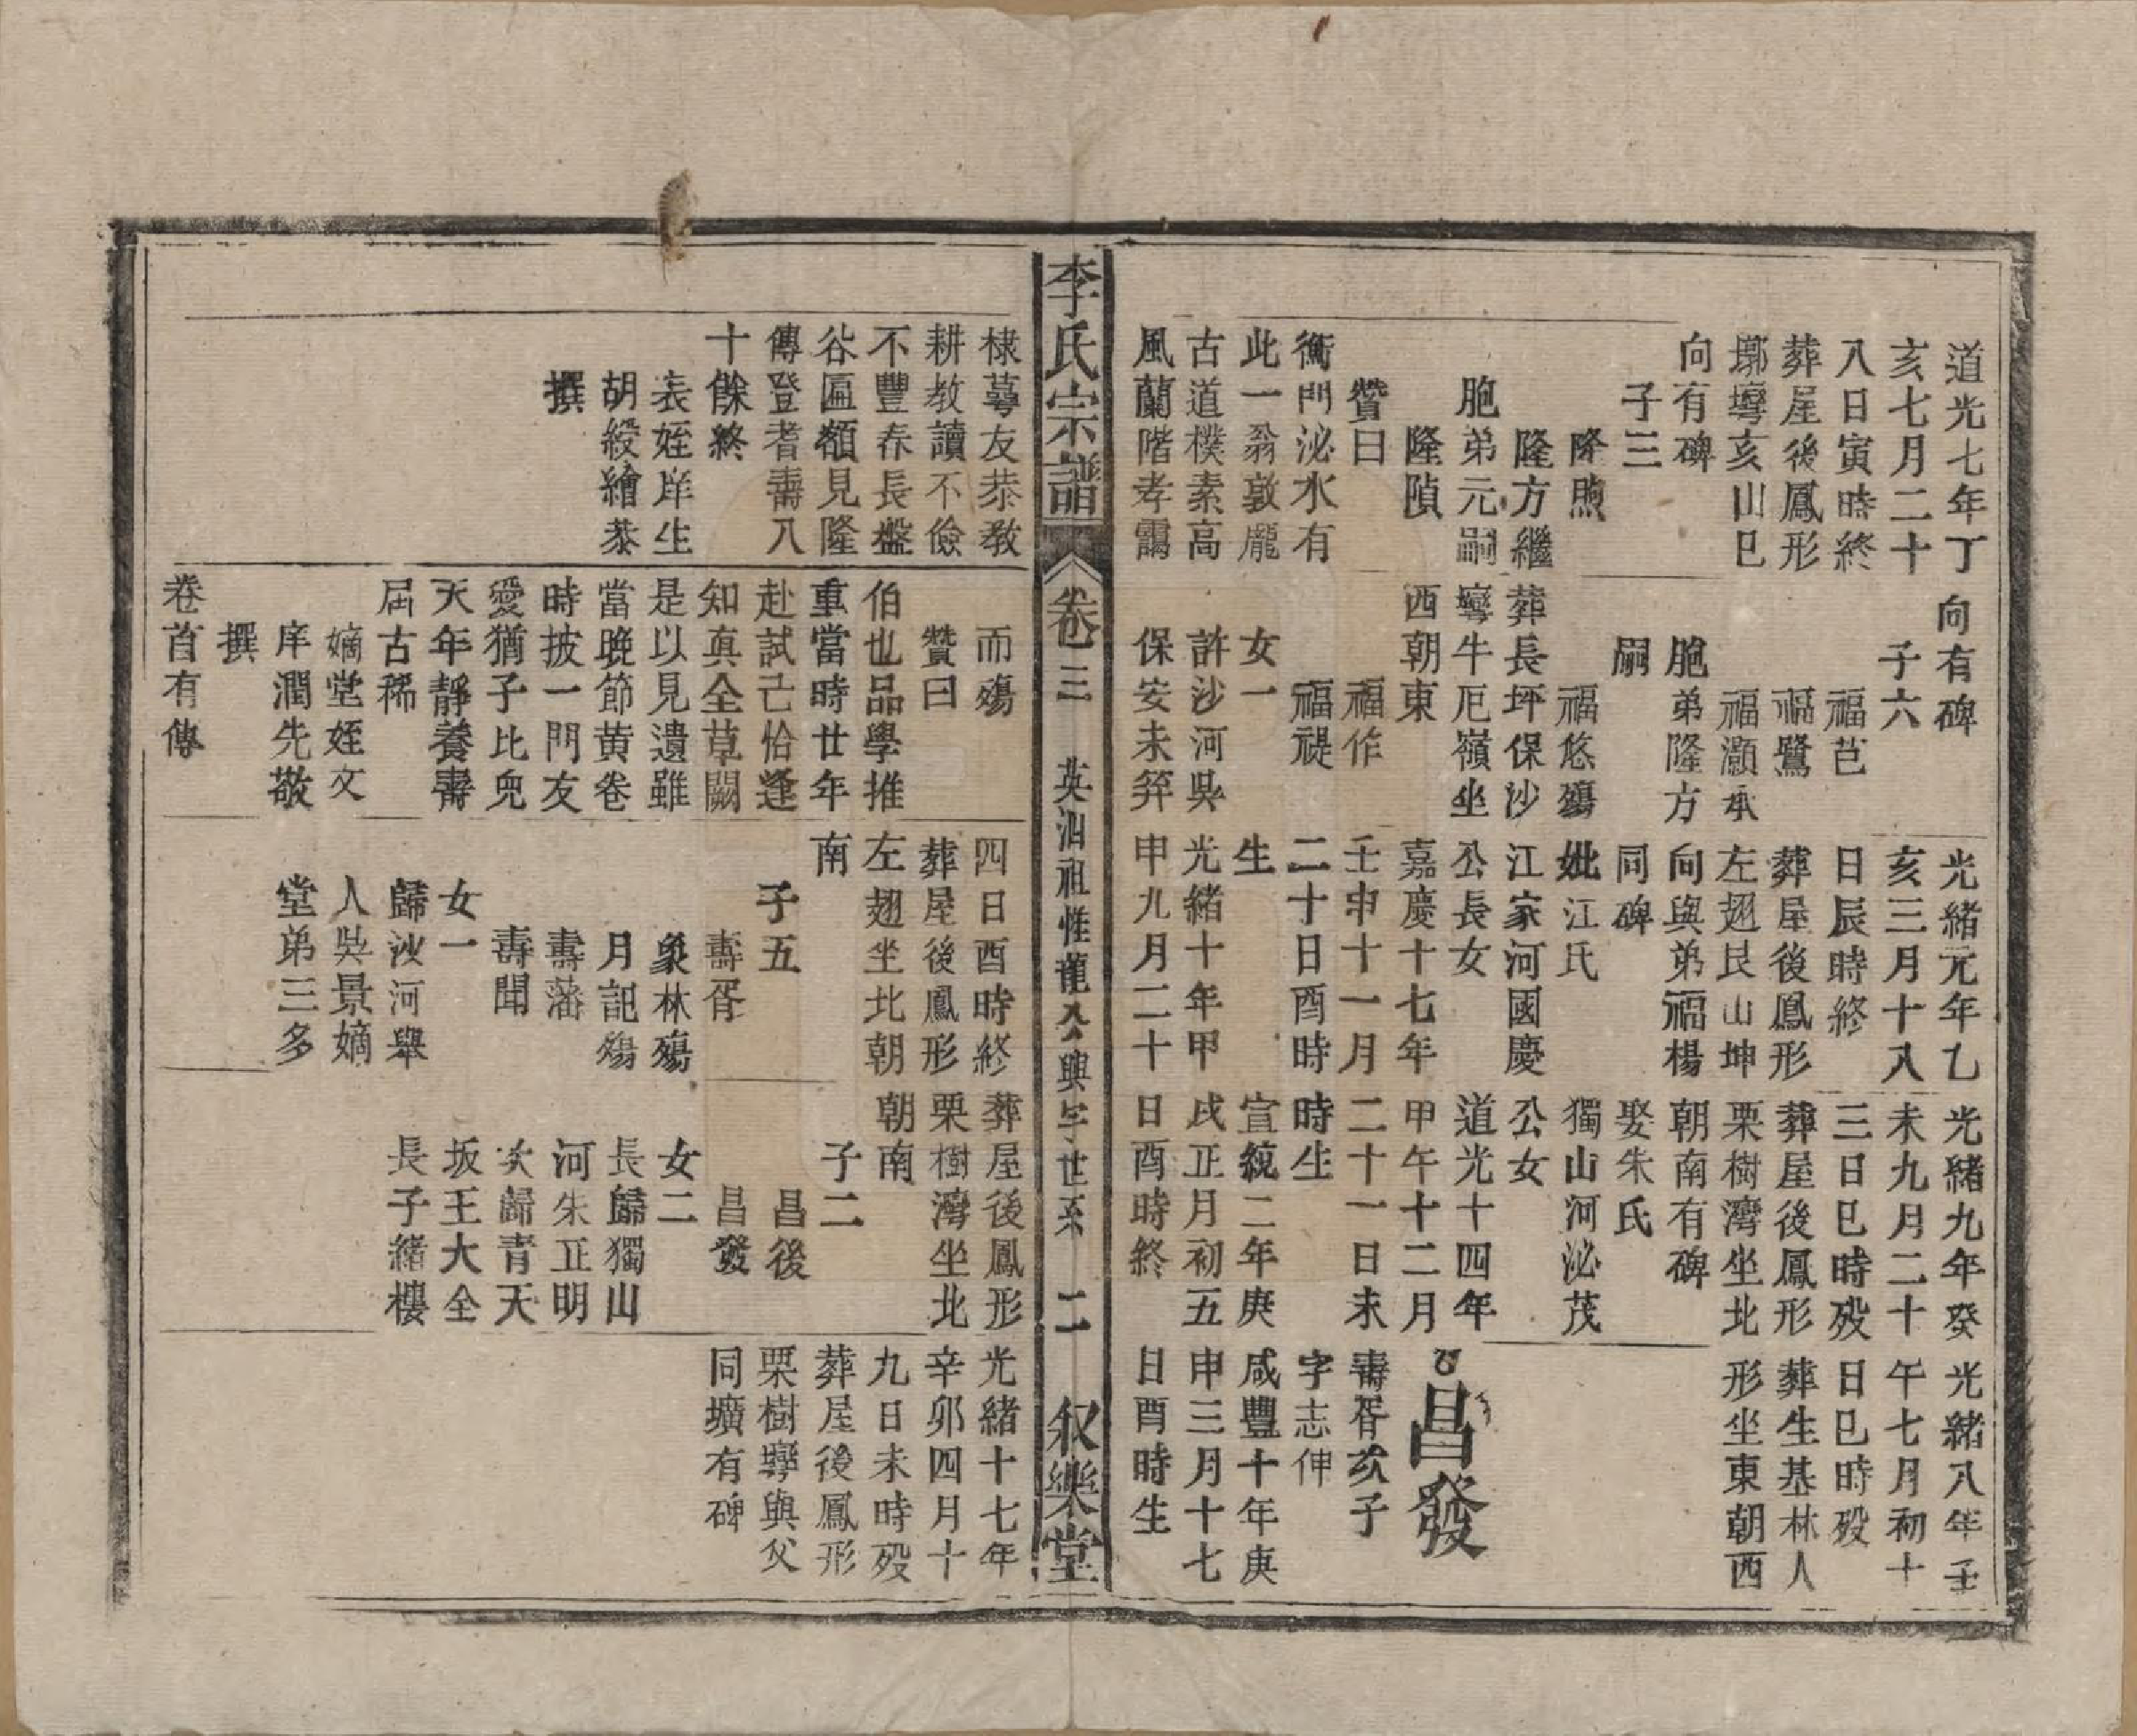 道光七年丁
亥七月二十
八日寅時終
葬屋後鳳形
塝塆亥山巳
向有碑
子三
隆煦
隆方繼
胞弟元嗣
隆隕
贊曰
衡門泌水有
此一翁敦龐
古道樸素高
風蘭階孝靄
向有碑
子六
福芑
福鷺
福灝承
胞弟隆方
嗣
福悠殤
葬長坪保沙
塆牛厄嶺坐
西朝東
福作
福禔
女一
許沙河吳
保安未筓
光緒元年乙
亥三月十八
日辰時終
葬屋後鳳形
左翅艮山坤
向與弟福楊
同碑
妣江氏
江家河國慶
公長女
嘉慶十七年
壬申十一月
二十日酉時
生
光緒十年甲
申九月二十
光緒九年癸
未九月二十
三日巳時歿
葬屋後鳳形
栗樹灣坐北
朝南有碑
娶朱氏
獨山河泌茂
公女
道光十四年
甲午十二月
二十一日未
時生
宣統二年庚
戌正月初五
日酉時終
光緒八年壬
午七月初十
日巳時歿
葬生基林人
形坐東朝西
昌發
壽胥亥子
字志伸
咸豐十年庚
申三月十七
日酉時生
李氏宗譜
卷三
英泗祖惟龍公興字世系
二
叙樂堂
棣萼友恭教
耕教讀不儉
不豐春長盤
谷匾額見隆
傳登耆壽八
十餘終
表姪庠生
胡綬繪恭
撰
而殤
贊曰
伯也品學推
重當時廿年
赴試己恰逢
知真全草闕
是以見遺雖
當晚節黃卷
時披一門友
愛猶子比兒
天年靜養壽
屆古稀
嫡堂姪文
庠潤先敬
撰
卷首有傳
四日酉時終
葬屋後鳳形
左翅坐北朝
南
子五
壽胥
象林殤
月詔殤
壽藩
壽聞
女一
歸沙河舉
人吳景嫡
堂弟三多
葬屋後鳳形
栗樹灣坐北
朝南
子二
昌後
昌發
女二
長歸獨山
河朱正明
次歸青天
坂王大全
長子緒樓
光緒十七年
辛卯四月十
九日未時歿
葬屋後鳳形
栗樹塆與父
同壙有碑